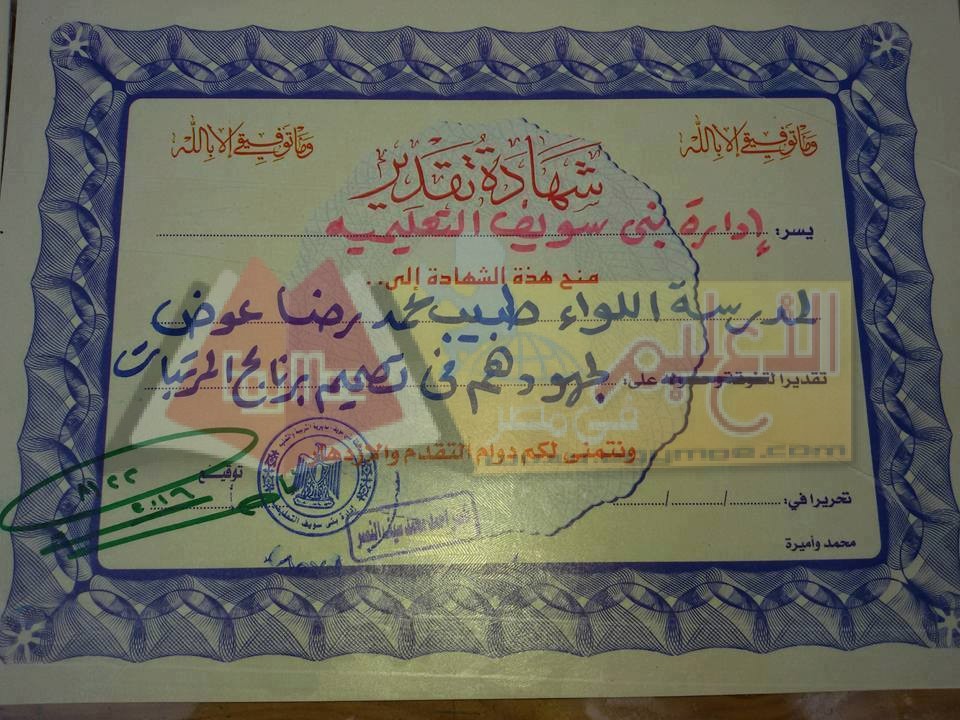 وما توفيقي إلا بالله
وما توفيقي إلا بالله
شهادة تقدير
يسر: إدارة بنى سويف التعليميه
منح هذة الشهادة إلى..
لمدرسة اللواء طبيب محمد رضا عوض
تقديرا على: لجهودهم فى تصميم برنامج المرتبات
ونتمنى لكم دوام التقدم والازدهار
تحريرا في: / /
توقيع
محمد وأميرة
إدارة بنى سويف التعليمية
التعليم
في مصر
moe.com